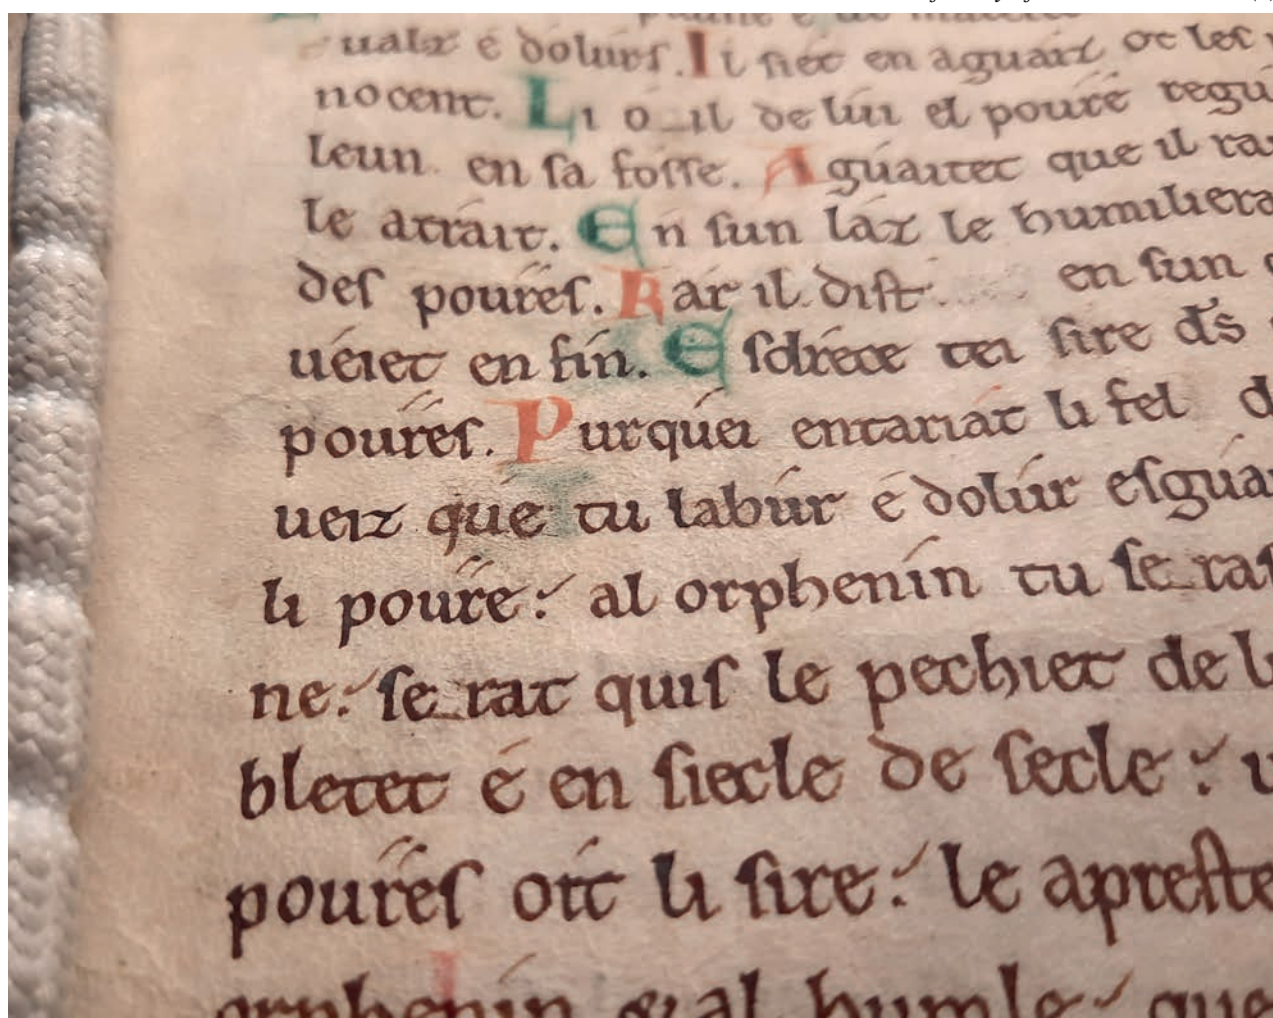 ualz é dolurs. Il siét en aguaiz oc les
nocent. Li o il de lui el pouŕe regu
leun en sa fosse. Aguaitet que il ra
le atrait. En sun láz le humiliera
des pouŕes. Kar il dist en sun
uéiet en fin. Esdréce tei sire ds
pouŕes. Purquéi entariat li fel d
ueiz que tu labúr é dolúr esguar
li pouŕe: al orphenín tu seras
ne: serat quis le pechiet de l
bletet é en siecle de secle: u
pouŕes oít li sire: le apreste
orphenín & al humle: que